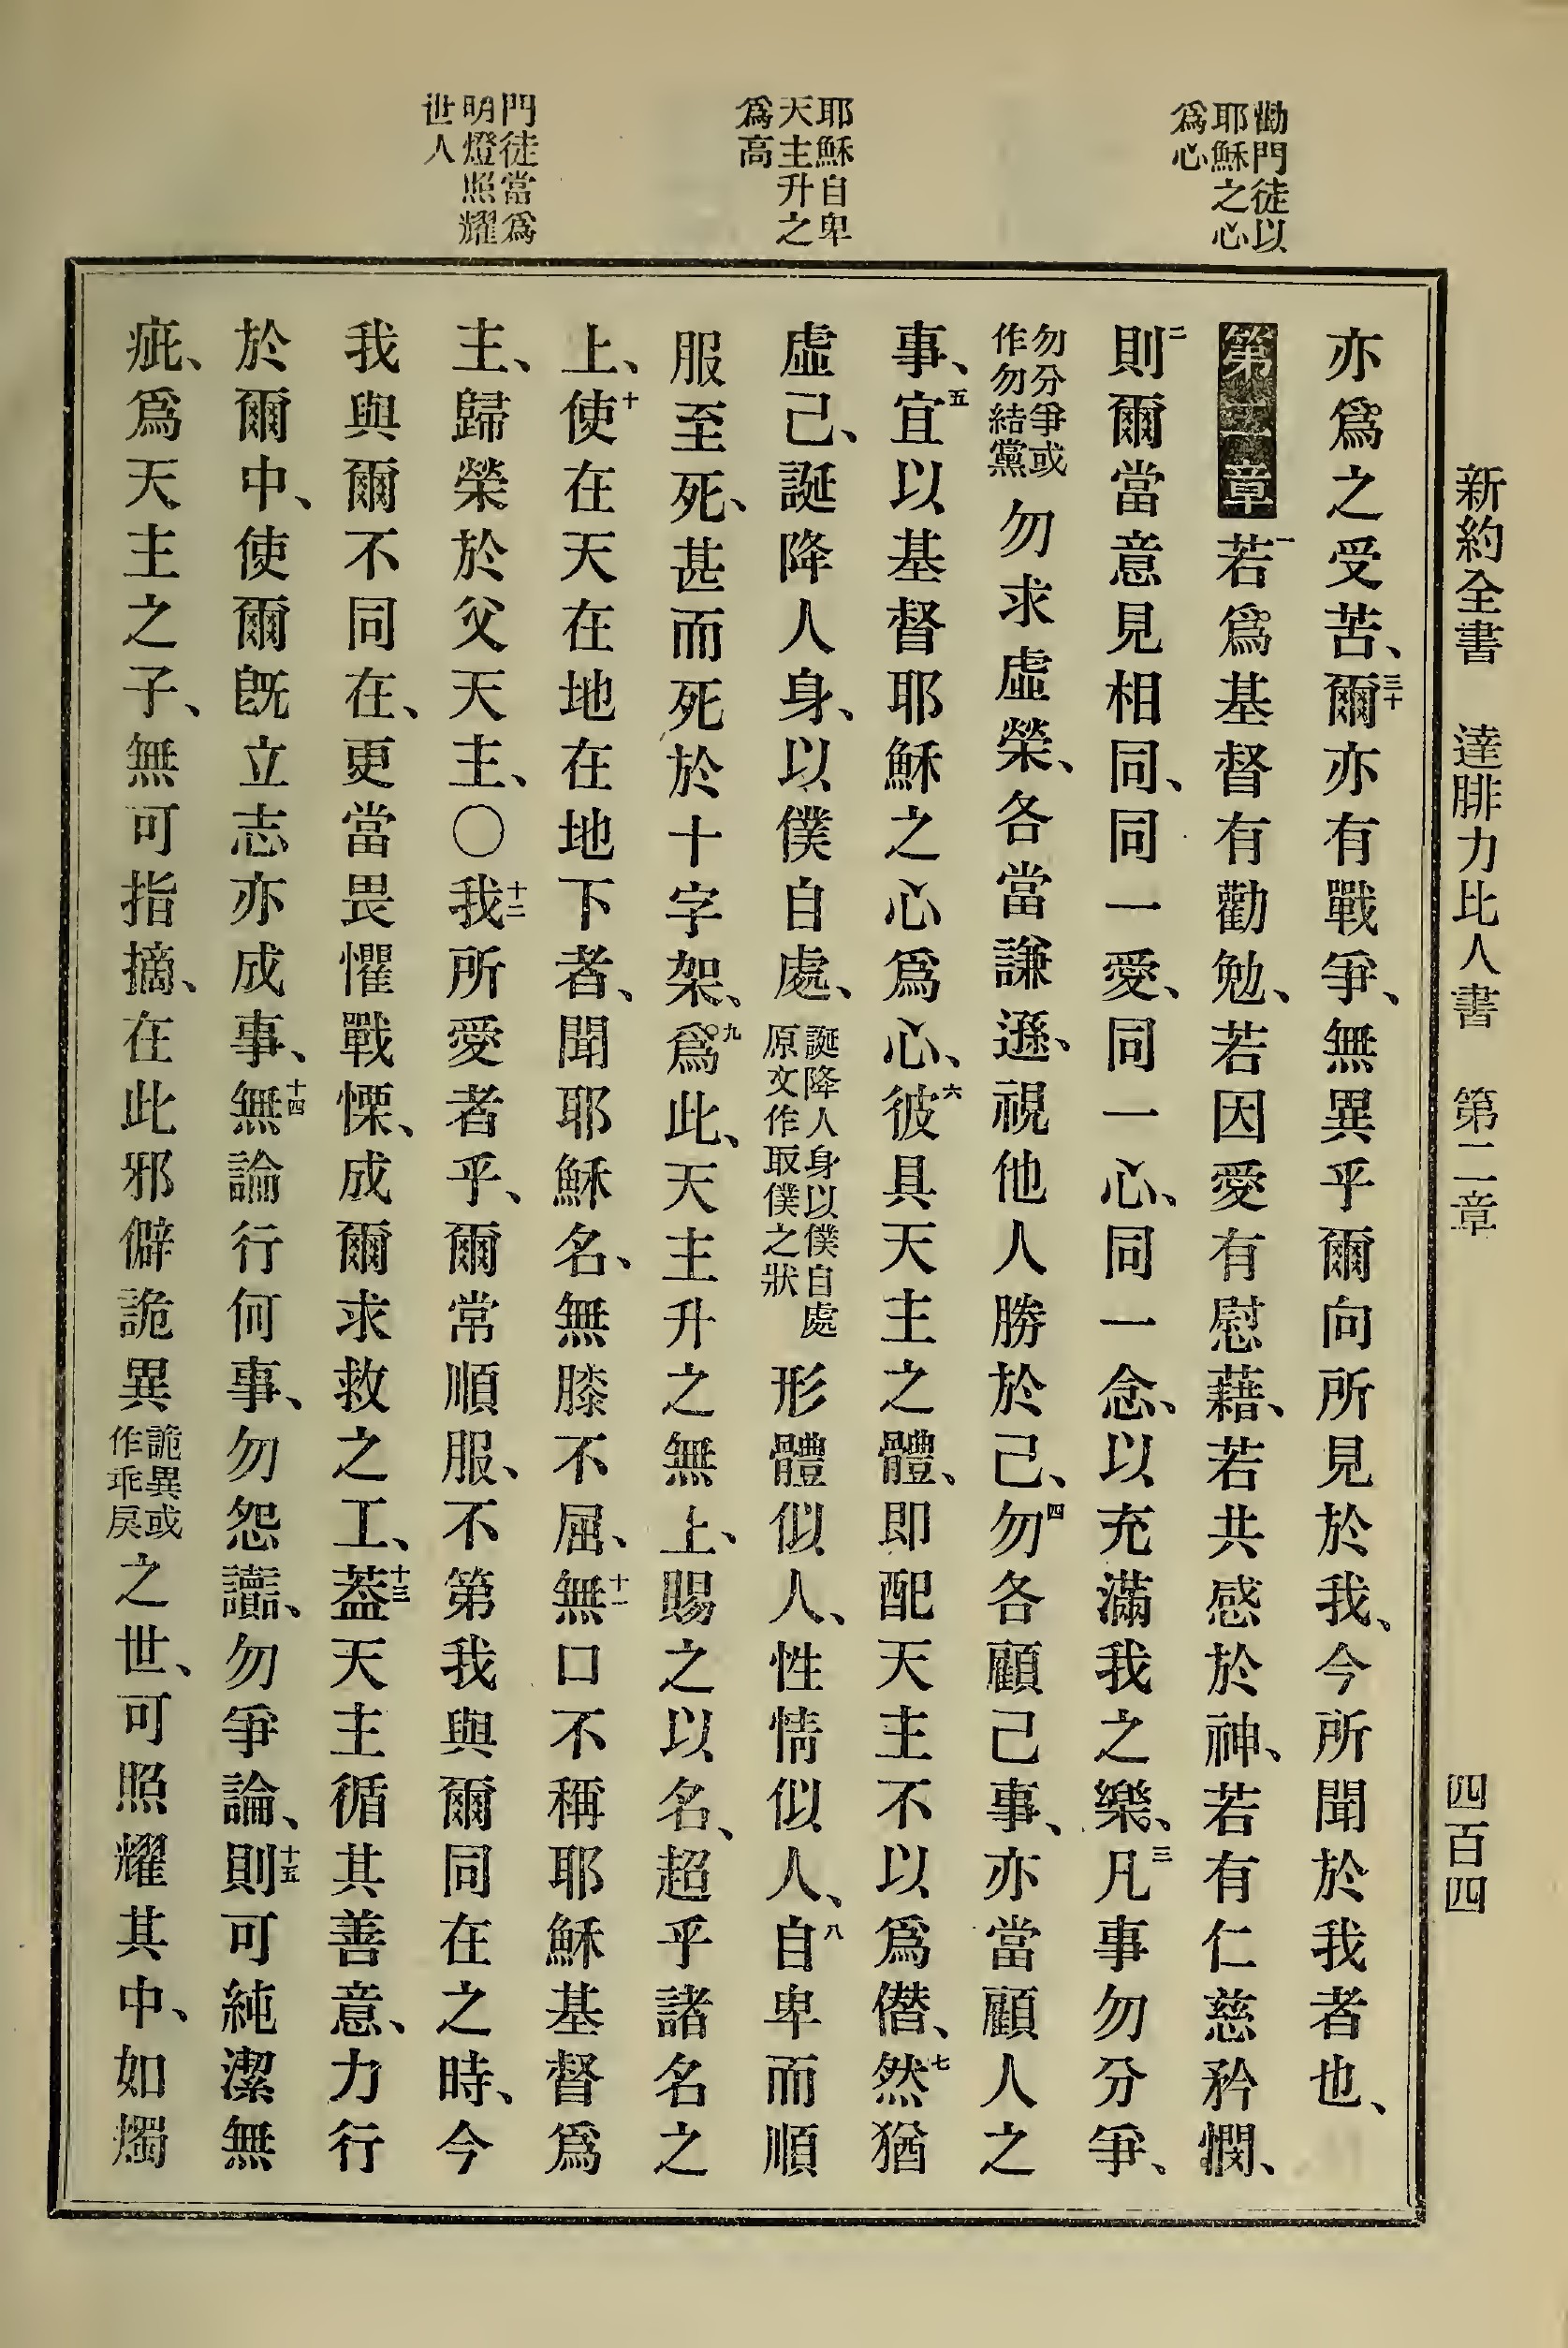 新約全書 達腓力比人書 第二章 四百四
勸門徒以
耶穌之心
爲心
耶穌自卑
天主升之
爲高
門徒當爲
明燈照耀
世人
亦爲之受苦、三十爾亦有戰爭、無異乎爾向所見於我、今所聞於我者也、
第二章一若爲基督有勸勉、若因愛有慰藉、若共感於神、若有仁慈矜憫、
二則爾當意見相同、同一愛、同一心、同一念、以充滿我之樂、三凡事勿分爭、
勿分爭或作勿結黨勿求虛榮、各當謙遜、視他人勝於己、四勿各顧己事、亦當顧人之
事、五宜以基督耶穌之心爲心、六彼具天主之體、即配天主不以爲僭、七然猶
虛己、誕降人身、以僕自處、誕降人身以僕自處原文作取僕之狀形體似人、性情似人、八自卑而順
服至死、甚而死於十字架、九爲此、天主升之無上、賜之以名、超乎諸名之
上、十使在天在地在地下者、聞耶穌名、無膝不屈、十一無口不稱耶穌基督爲
主、歸榮於父天主、〇十二我所愛者乎、爾常順服、不第我與爾同在之時、今
我與爾不同在、更當畏懼戰慄、成爾求救之工、十三蓋天主循其善意、力行
於爾中、使爾旣立志亦成事、十四無論行何事、勿怨讟、勿爭論、十五則可純潔無
疵、爲天主之子、無可指摘、在此邪僻詭異詭異或作乖戾之世、可照耀其中、如燭